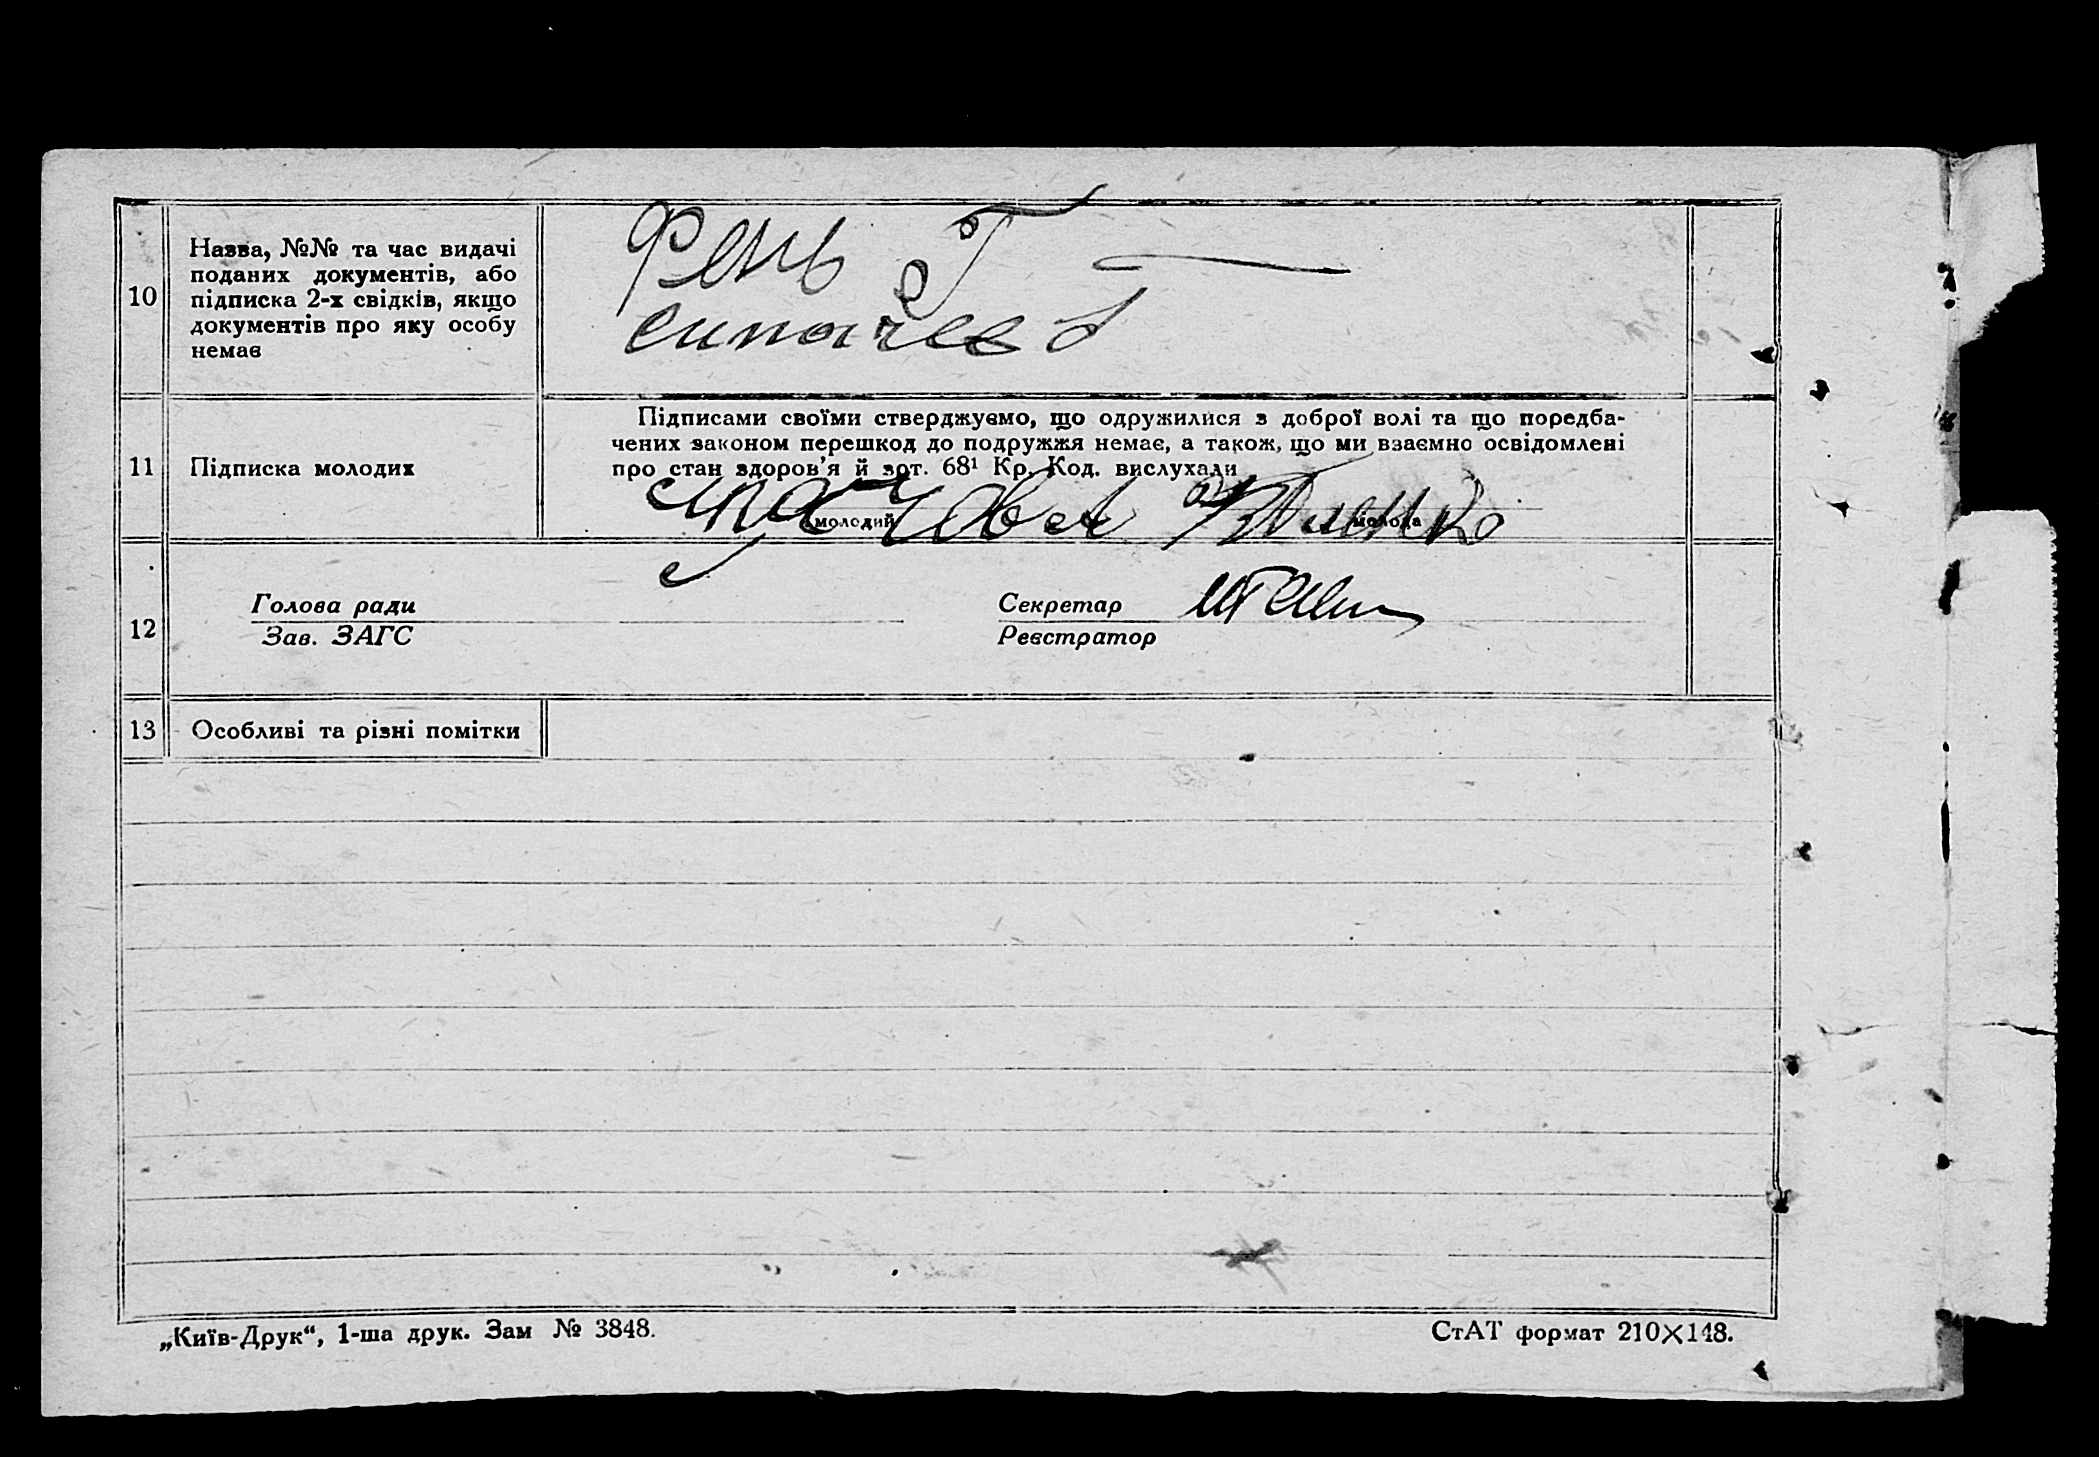 10
Назва, №№ та час видачі
поданих документів, або
підписка 2-х свідків, якщо
документів про яку особу
немає
Фень Г
11
Підписка молодих
Підписами своїми стверджуємо, що одружилися з доброї волі та що поредба-
чених законом перешкод до подружжя немає, а також, що ми взаємно освідомлені
про стан здоров’я й арт. 68¹ Кр. Код. вислухали
молодий молода
12
Голова ради
Зав. ЗАГС
Секретар
Реєстратор
13
Особливі та різні помітки
„Київ-Друк“, 1-ша друк. Зам № 3848.
СтАТ формат 210×148.